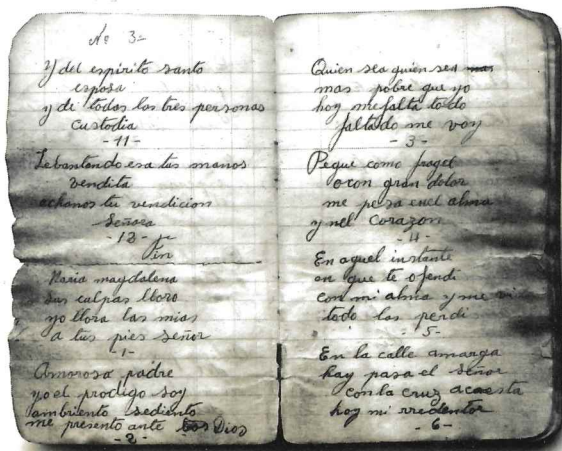 Nº 3=
y del espirito santo
esposa
y de todas las tres personas
custodia
-11-
Lebantando esa tus manos
vendita
echanos tu vendicion
Señora
-12-
Fin
Maria magdalena
sus culpas lloro
yo llora las mias
a tus pies señor
-1-
Amorosa padre
yo el prodigo soy
ambriento sediento
me presento ante Dios
-2-
Quien sea quien sea
mas pobre que yo
hoy me falta todo
faltado me voy
-3-
Pequé como fragel
o con gran dolor
me pesa enel alma
y nel Corazon
-4-
En aquel instante
en que te ofendi
con mi alma y me vi
todo las perdi
-5-
En la calle amarga
hay pasa el Señor
con la cruz acuesta
hoy mi rredentor
-6-